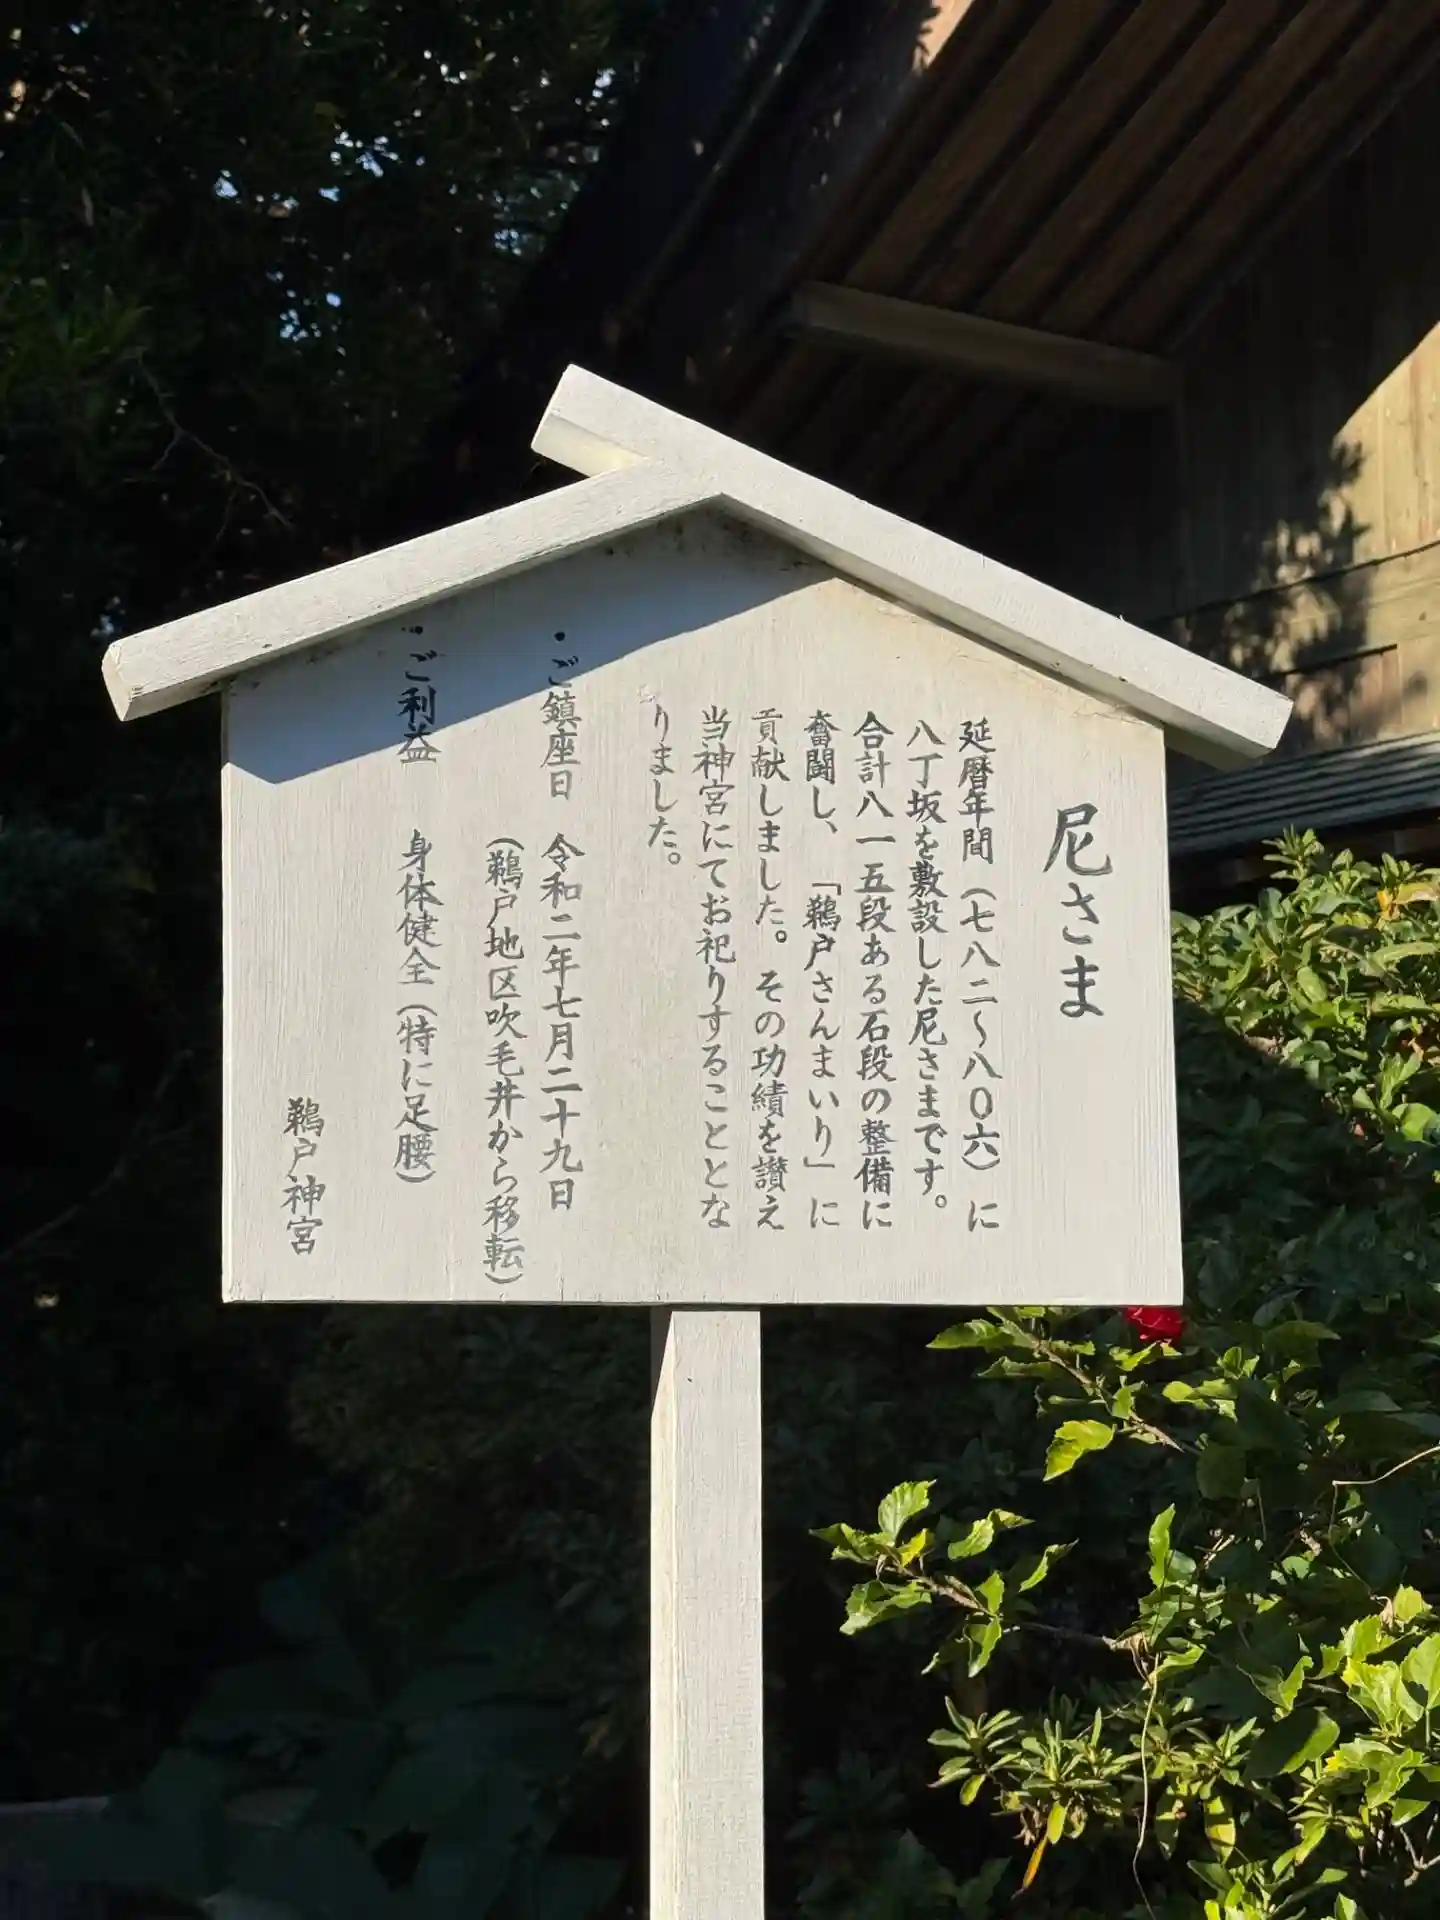 尼さま
延暦年間（七八二～八〇六）に
八丁坂を敷設した尼さまです。
合計八一五段ある石段の整備に
奮闘し、「鵜戸さんまいり」に
貢献しました。その功績を讃え
当神宮にてお祀りすることとな
りました。
・ご鎮座日　令和二年七月二十九日
（鵜戸地区吹毛井から移転）
・ご利益　身体健全（特に足腰）
鵜戸神宮